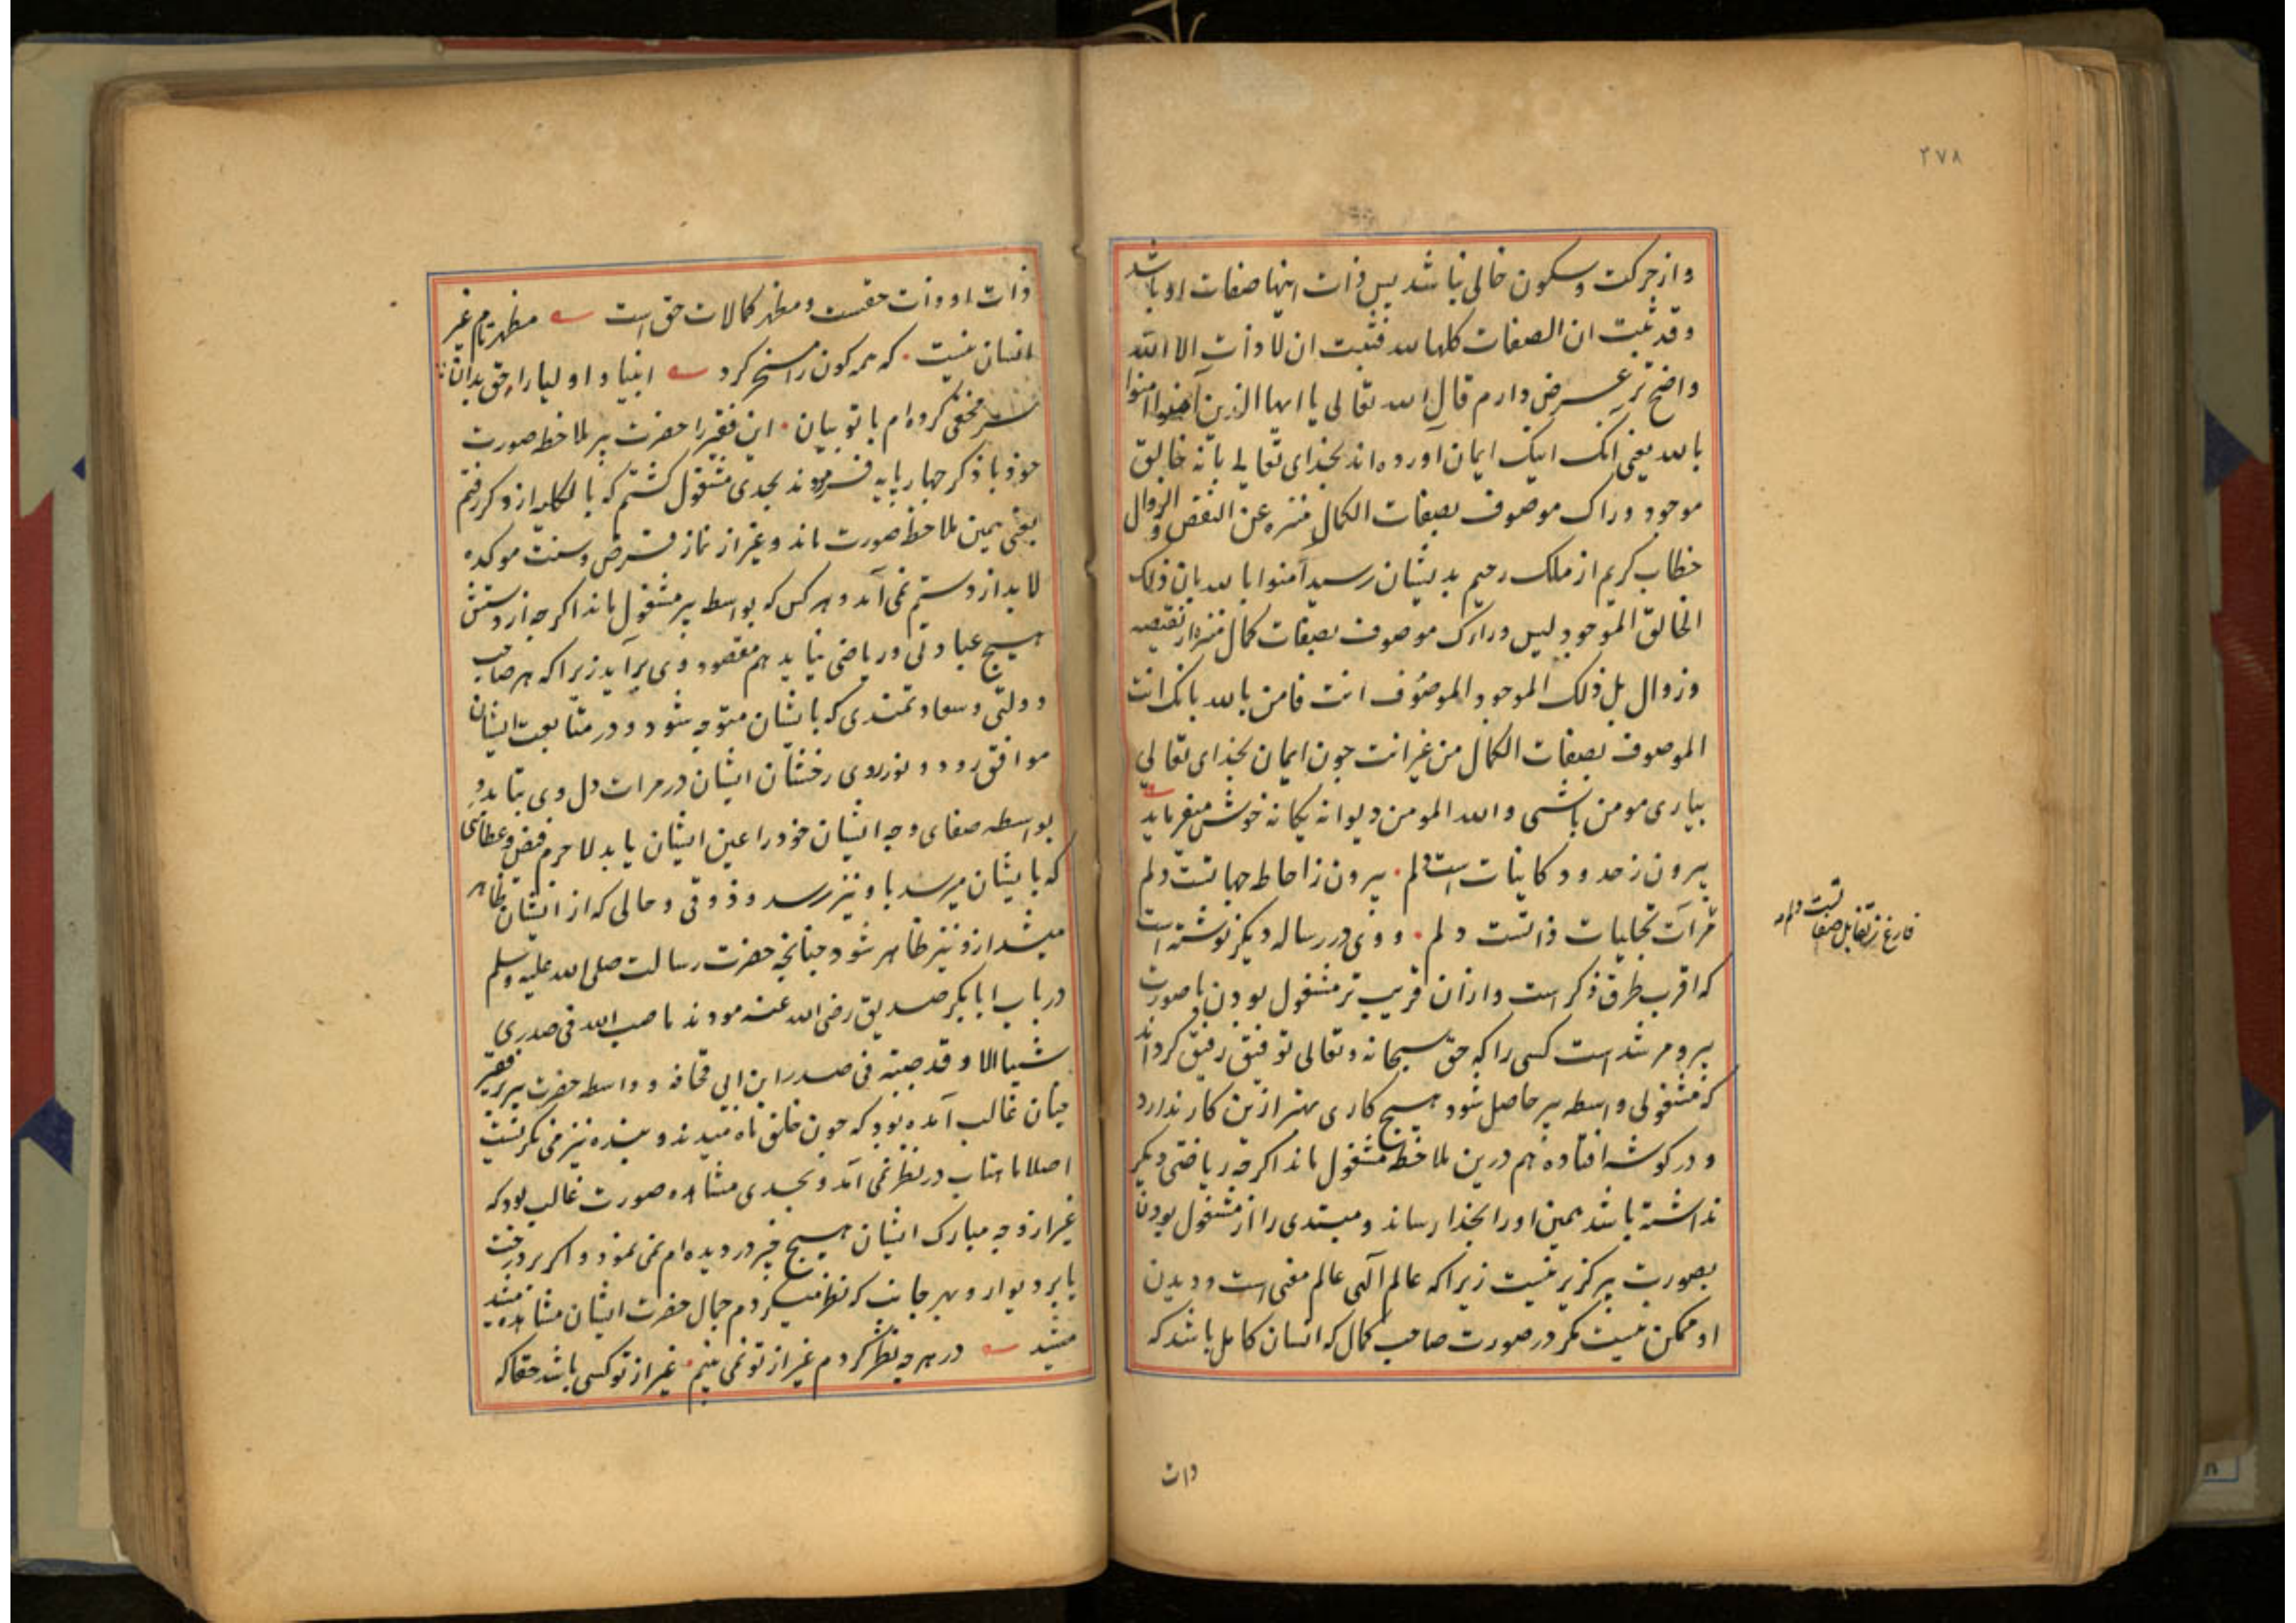 ۲۷۸
و از حرکت و سکون خالی نباشد پس ذات اینها صفات او باشد
و قد ثبت ان الصفات کلها لله فثبت ان لا ذات الا الله
واضح تر عرض دارم قال الله تعالی یا ایها الذین آمنوا امنوا
بالله یعنی انک اینک ایمان آورده اند بخدای تعالی بانه خالق
موجود وراک موصوف بصفات الکمال منزه عن النقص و الزوال
خطاب کریم از ملک رحیم بدیشان رسید آمنوا بالله بان ذلک
الخالق الموجود لیس ورارک موصوف بصفات کمال منزه از نقیصه
وزوال بل ذلک الموجود الموصوف انت فامن بالله بانک انت
الموصوف بصفات الکمال من غیر انت چون ایمان بخدای تعالی
بیاری مومن باشی و الله المومن دیوانه یکانه خوش میفرماید
بیرون ز حدود کاینات است دلم • بیرون ز احاطه جهاتست دلم
فارغ ز تقابل صفاتست دلم
مرآت تجلیات ذاتست دلم • و وی در رساله دیکر نوشته است
که اقرب طرق ذکر است و ازان قریب تر مشغول بودن با صورت
پیر و مرشد است کسی را که حق سبحانه و تعالی توفیق رفیق کرداند
که مشغولی واسطه پیر حاصل شود هیچ کاری بهتر ازین کار ندارد
و در کوشه افتاده هم درین ملاحظه مشغول ماند اکرچه ریاضتی دیکر
نداشته باشد همین او را بخدا رساند و مبتدی را از مشغول بودن
بصورت پیر کزیر نیست زیرا که عالم آلهی عالم معنی است و دیدن
او ممکن نیست مکر در صورت صاحب کمال که انسان کامل باشد که
ذات
ذات او ذات حقست و مظهر کمالات حق است مظهر تام غیر
انسان نیست • که همه کون را مسخر کرد انبیا و اولیا را حق بدان
سر مخفی کرده ام با تو بیان • این فقیر را حضرت پیر ملاحظه صورت
خود با ذکر چهار پایه فرمودند بجدی مشغول کشتم که بالکلیه از ذکر رفتم
یعنی همین ملاحظه صورت ماند و غیر از نماز فرض و سنت موکده
لابد از دستم نمی آمد و هر کس که بواسطه پیر مشغول ماند اکرچه از دستش
هیچ عبادتی و ریاضتی نیاید هم مقصود وی برآید زیرا که هر صاحب
دولتی و سعادتمندی که بایشان متوجه شود و در متابعت ایشان
موافق رود و نور روی رخشان ایشان در مرات دل وی بتابد و
بواسطه صفای وجه ایشان خود را عین ایشان یابد لاجرم فیض و عطائی
که بایشان میرسد باو نیز رسد و ذوقی و حالی که از ایشان ظاهر
میشد ازو نیز ظاهر شود چنانچه حضرت رسالت صلی الله علیه وسلم
در باب ابابکر صدیق رضی الله عنه فرمودند ما صب الله فی صدری
شیا الا و قد صببته فی صدر ابن ابی قحافه و واسطه حضرت پیر بر فقیر
چنان غالب آمده بود که چون خلق ماه میدیدند و بنده نیز می نکریست
اصلا ماهتاب در نظر نمی آمد و بجدی مشاهده صورت غالب بود که
غیر از وجه مبارک ایشان هیچ چیز در دیده ام نمی نمود و اکر بر درخت
یا بر دیوار و بهر جانب که نظر میکردم جمال حضرت ایشان مشاهده
میشد در هر چه نظر کردم غیر از تو نمی بینم • غیر از تو کسی باشد حقا که